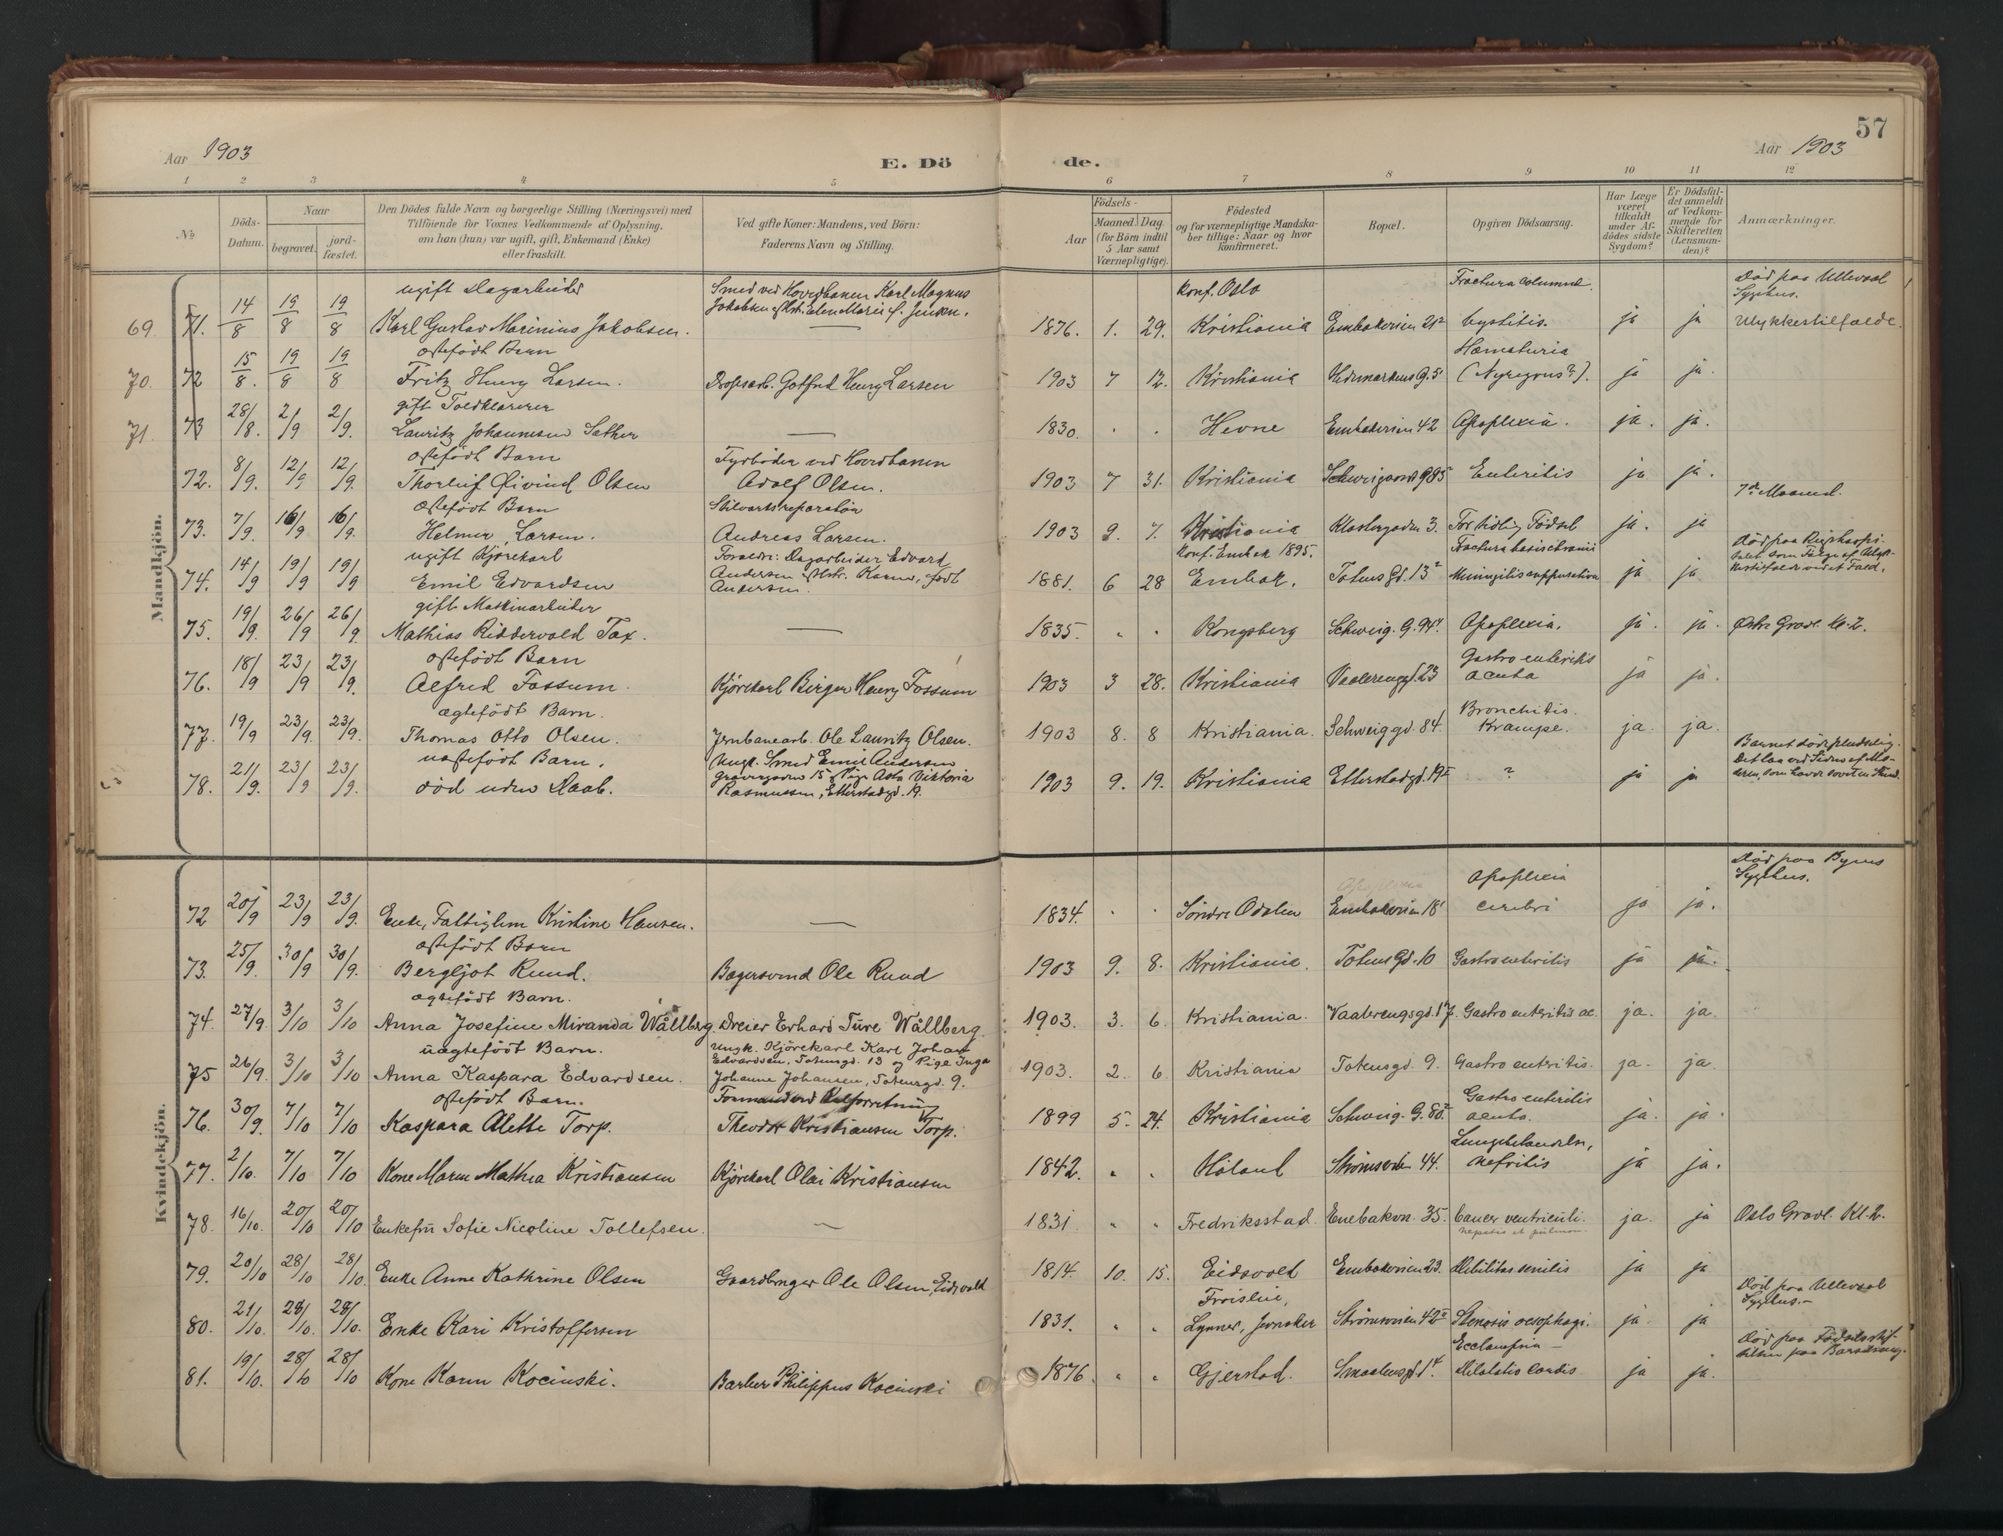 57
Aar 1903
E. Dö
de.
Aar 1903
1 2 3 4 5 6 7 8 9 10 11 12
No
Döds-Datum.
Naar
begravet.
jord-fæstet.
Den Dödes fulde Navn og borgerlige Stilling (Næringsvei) med
Tilföiende for Voxnes Vedkommende af Oplysning,
om han (hun) var ugift, gift, Enkemand (Enke)
eller fraskilt.
Ved gifte Koner: Mandens, ved Börn:
Faderens Navn og Stilling.
Födsels-
Aar
Maaned. Dag.
(for Börn indtil
5 Aar samt
Værnepligtige).
Födested
og for værnepligtige Mandska-
ber tillige: Naar og hvor
konfirmeret.
Bopæl.
Opgiven Dödsaarsag.
Har Læge
været
tilkaldt
under Af-
dödes sidste
Sygdom?
Er Dödsfal-
det anmeldt
af Vedkom-
mende for
Skifteretten
(Lensman-
den)?
Anmærkninger.
Mandkjön.
ugift Dagarbeider Smed ved Hovedbanen Karl Magnus konf. Oslo Fractura column. Död paa Ullevaal
Sygehus.
69. 71. 14/8 19/8 19/8 Karl Gustav Marinius Jakobsen. 1876. 1. 29. Kristiania Enebakveien 21² Cystitis. ja ja Ulykkestilfælde.
ægtefödt Barn Hæmaturia
70. 72 15/8. 19/8 19/8 Fritz Henry Larsen. Gotfred Henry Larsen 1903 7 12. Kristiania Hedemarkens G. 5¹ ja ja.
gift Toldklarerer
71. 73 28/8. 2/9 2/9. Lauritz Johannesen Sæther — 1830. . . Hevne Enebakveien 42 Apoplexia. ja. ja.
ægtefödt Barn Fyrböder ved Hovedbanen
72. 8/9. 12/9 12/9. Thorleif Öivind Olsen Adolf Olsen. 1903 7 31. Kristiania Schweigaards G 85 Enteritis ja ja.
ægtefödt Barn 7de Maaned.
73. 7/9. 16/9 16/9. Helmer Larsen. Andreas Larsen. 1903 9. 7. Kristiania Klostergaden 3. For tidlig Födsel ja. ja
ugift Kjörekarl Forældre: Dagarbeider Edvart konf. Enebak 1895. Fractura basis cranii
74. 14/9 19/9 19/9 Emil Edvardsen Andersen 1881. 6 28 Enebak. Totens Gd. 13² Meningitis suppurativa ja ja
Andersen.
gift Maskinarbeider
75. 19/9. 26/9 26/9. Mathias Riddervold Tax. — 1835. „ „ Kongsberg Schweig. G. 94¹ Apoplexia. ja. ja. Östre Gravl. Kl. 2.
ægtefödt Barn Gastro enteritis
76. 18/9 23/9 23/9. Alfred Fossum. Kjörekarl Birger Henry Fossum 1903 3 28. Kristiania Vaalerenggd. 23 acuta ja ja.
ægtefödt Barn. Bronchitis.
77. 19/9 23/9. 23/9. Thomas Otto Olsen. Jernbanearb. Ole Lauritz Olsen. 1903 8. 8 Kristiania. Schweiggd. 84. Krampe. ja. ja.
uægtefödt Barn. Ungk. Smed Emil Andersen Barnet döde pludselig.
78. 21/9. 23/9 23/9. död uden Daab. 15 Pige Asta Viktoria 1903 9. 19. Kristiania Etterstadgd. 19 ? ja ja
Rasmussen, Etterstadgd. 19.
Kvindekjön.
Död paa Byens
Sygehus.
Apoplexia
72 20/9 23/9 23/9. Enke, Fattiglem Kristine Hansen. — 1834. . . Söndre Odalen Enebakveien 18¹ cerebri ja ja.
ægtefödt Barn
73. 25/9. 30/9 30/9. Bergljot Ruud. Bagersvend Ole Ruud 1903 9. 8. Kristiania. Totens Gd. 10 Gastroenteritis ja ja.
ægtefödt Barn.
74. 27/9. 3/10 3/10 Anna Josefine Miranda Wållberg. Dreier Erhard Ture Wållberg. 1903. 3. 6. Kristiania. Vaalerengsgd. 17. Gastro enteritis ac. ja. ja.
uægtefödt Barn. Ungk. Kjörekarl Karl Johan
Edvardsen, Totensgd. 13 og Pige Inga
75 26/9. 3/10 3/10 Anna Kaspara Edvardsen. Johanne Johansen, Totensgd. 9. 1903. 2. 6 Kristiania Totensgd. 9. Gastro enteritis. ja. ja
ægtefödt Barn. Gastro enteritis
76. 30/9. 7/10 7/10 Kaspara Alette Torp. Theodor Kristiansen Torp. 1899 5. 24. Kristiania Schweig. G. 80² acuta. ja. ja.
77. 2/10. 7/10 7/10 Kone Maren Mathea Kristiansen Kjörekarl Olai Kristiansen 1842. „ „ Höland Strömsveien 44. Lungebetændelse,
nefritis ja ja.
78. 16/10. 20/10 20/10 Enkefru Sofie Nicoline Tollefsen. — 1831. „ „ Fredriksstad. Enebakvn. 35. Cancer ventriculi. ja. ja Oslo Gravl. Kl. 2.
hepatis et pulmon.
79. 20/10 28/10 28/10. Enke Anne Kathrine Olsen Gaardbruger Ole Olsen, Eidsvold 1814. 10. 15. Eidsvold Enebakveien 23. Debilitas senilis ja ja
Död paa Ullevaal
Sygehus.
80. 21/10. 28/10. 28/10. Enke Kari Kristoffersen 1831. „ „ Lynner, Jevnaker Strömsveien 42 Stenosis oesophagi. ja. ja
Eclampsia — Död paa Födselsstif-
telsen paa Barselseng.
81. 19/10. 28/10 28/10 Kone Karen Kocinski. Barber Philippus Kocinski 1876. „ „ Gjerstad. Smaalensgd. 1⁴ Dilatatio cordis ja ja.